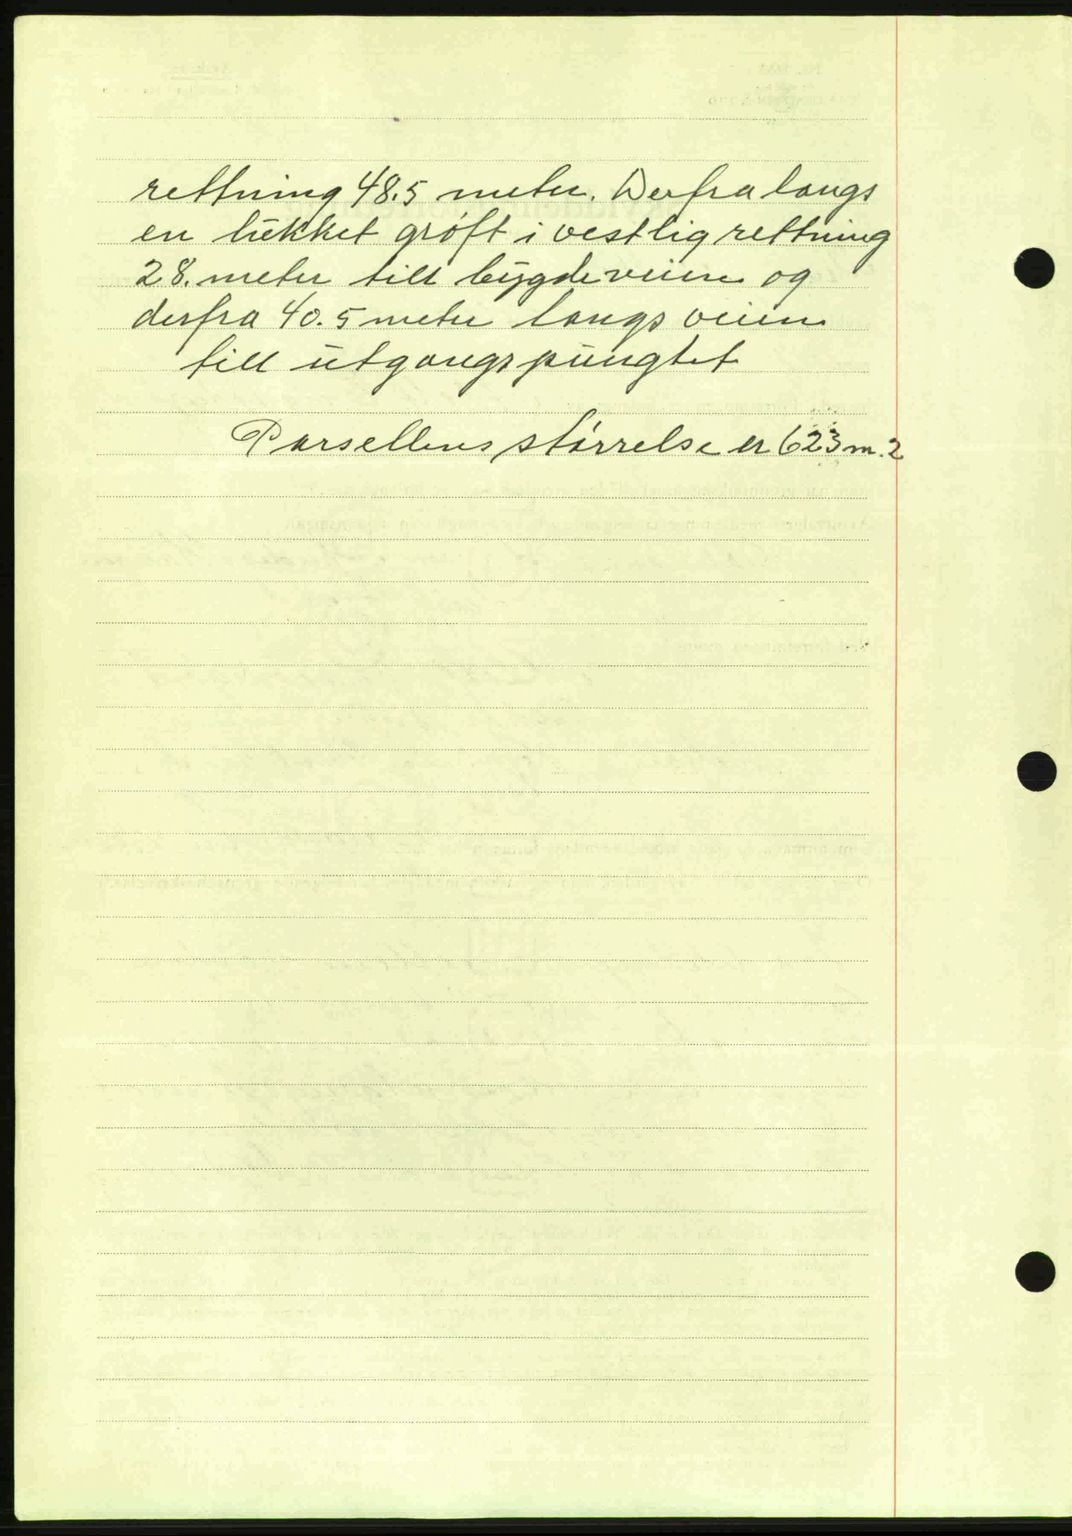 rettning 48.5 meter. Derfra langs
en lukket grøft i vestlig rettning
28. meter till bygdeveien og
derfra 40.5 meter langs veien
till utgangspungtet
Parsellens størrelse er 623 m.2